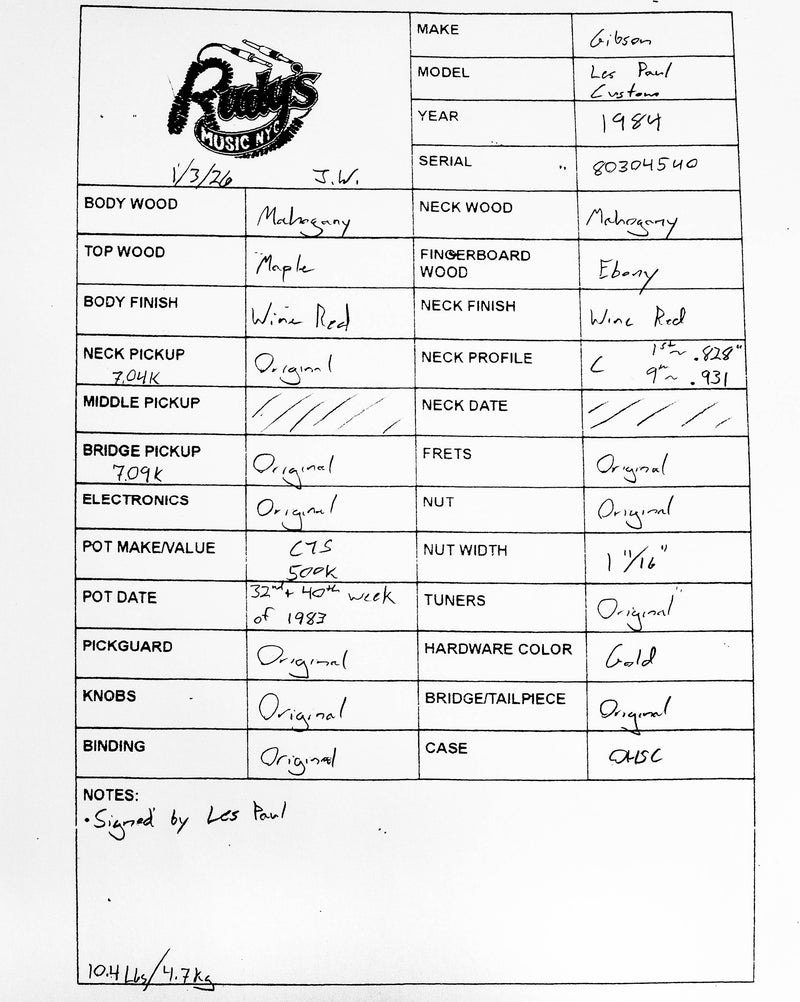 Rudy's
MUSIC NYC
1/3/26 J.W.
MAKE Gibson
MODEL Les Paul
Custom
YEAR 1984
SERIAL 80304540
BODY WOOD Mahogany NECK WOOD Mahogany
TOP WOOD Maple FINGERBOARD
WOOD Ebony
BODY FINISH Wine Red NECK FINISH Wine Red
NECK PICKUP
7.04K Original NECK PROFILE C 1st ~ .828"
9th ~ .931
MIDDLE PICKUP NECK DATE
BRIDGE PICKUP
7.09K Original FRETS Original
ELECTRONICS Original NUT Original
POT MAKE/VALUE CTS
500K NUT WIDTH 1 11/16"
POT DATE 32nd + 40th week
of 1983 TUNERS Original
PICKGUARD Original HARDWARE COLOR Gold
KNOBS Original BRIDGE/TAILPIECE Original
BINDING Original CASE OHSC
NOTES:
• Signed by Les Paul
10.4 Lbs/4.7kg